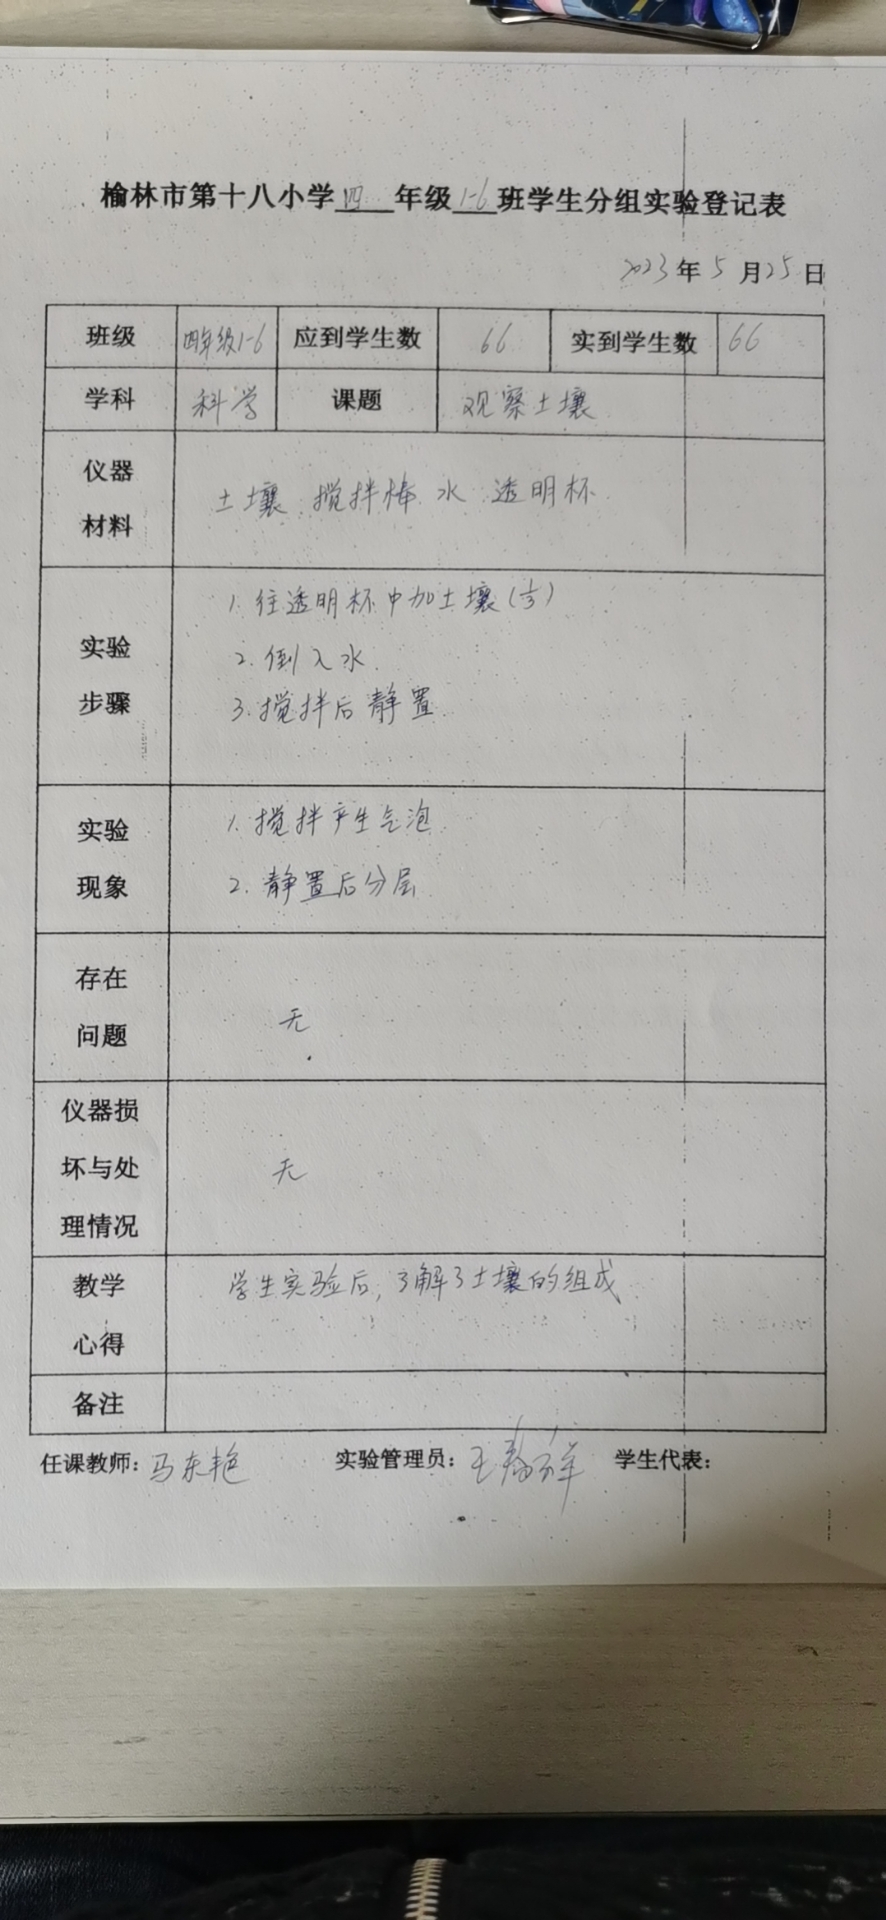 榆林市第十八小学四年级1-6班学生分组实验登记表
2023年5月25日
班级 四年级1-6 应到学生数 66 实到学生数 66
学科 科学 课题 观察土壤
仪器
材料
土壤 搅拌棒 水 透明杯
实验
步骤
1. 往透明杯中加土壤(
2. 倒入水.
3. 搅拌后静置.
实验
现象
1. 搅拌产生气泡
2. 静置后分层
存在
问题
无
仪器损
坏与处
理情况
无
教学
心得
学生实验后, 了解了土壤的组成
备注
任课教师: 马东艳 实验管理员: 王 学生代表: